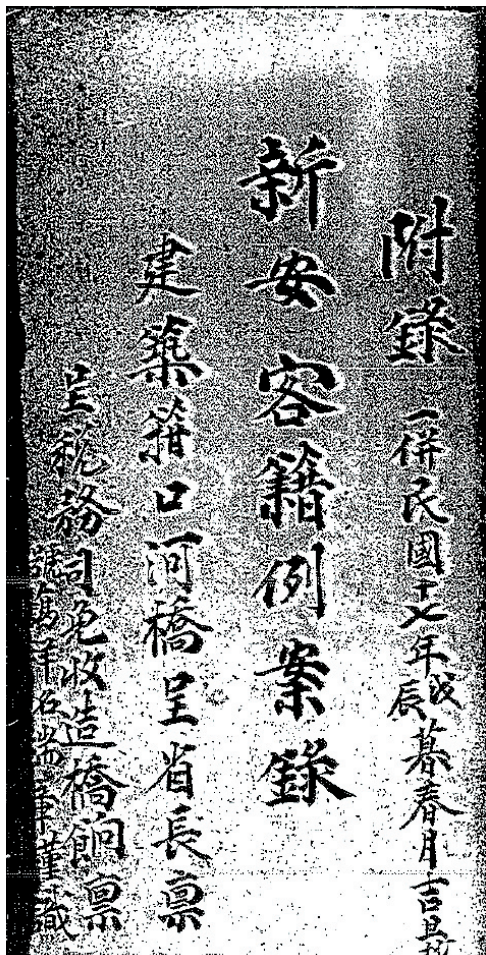 附錄 一併民國十七年戊辰暮春月吉
新安客籍例案錄
建築籍口河橋呈省長禀
呈稅務司免收造橋餉禀